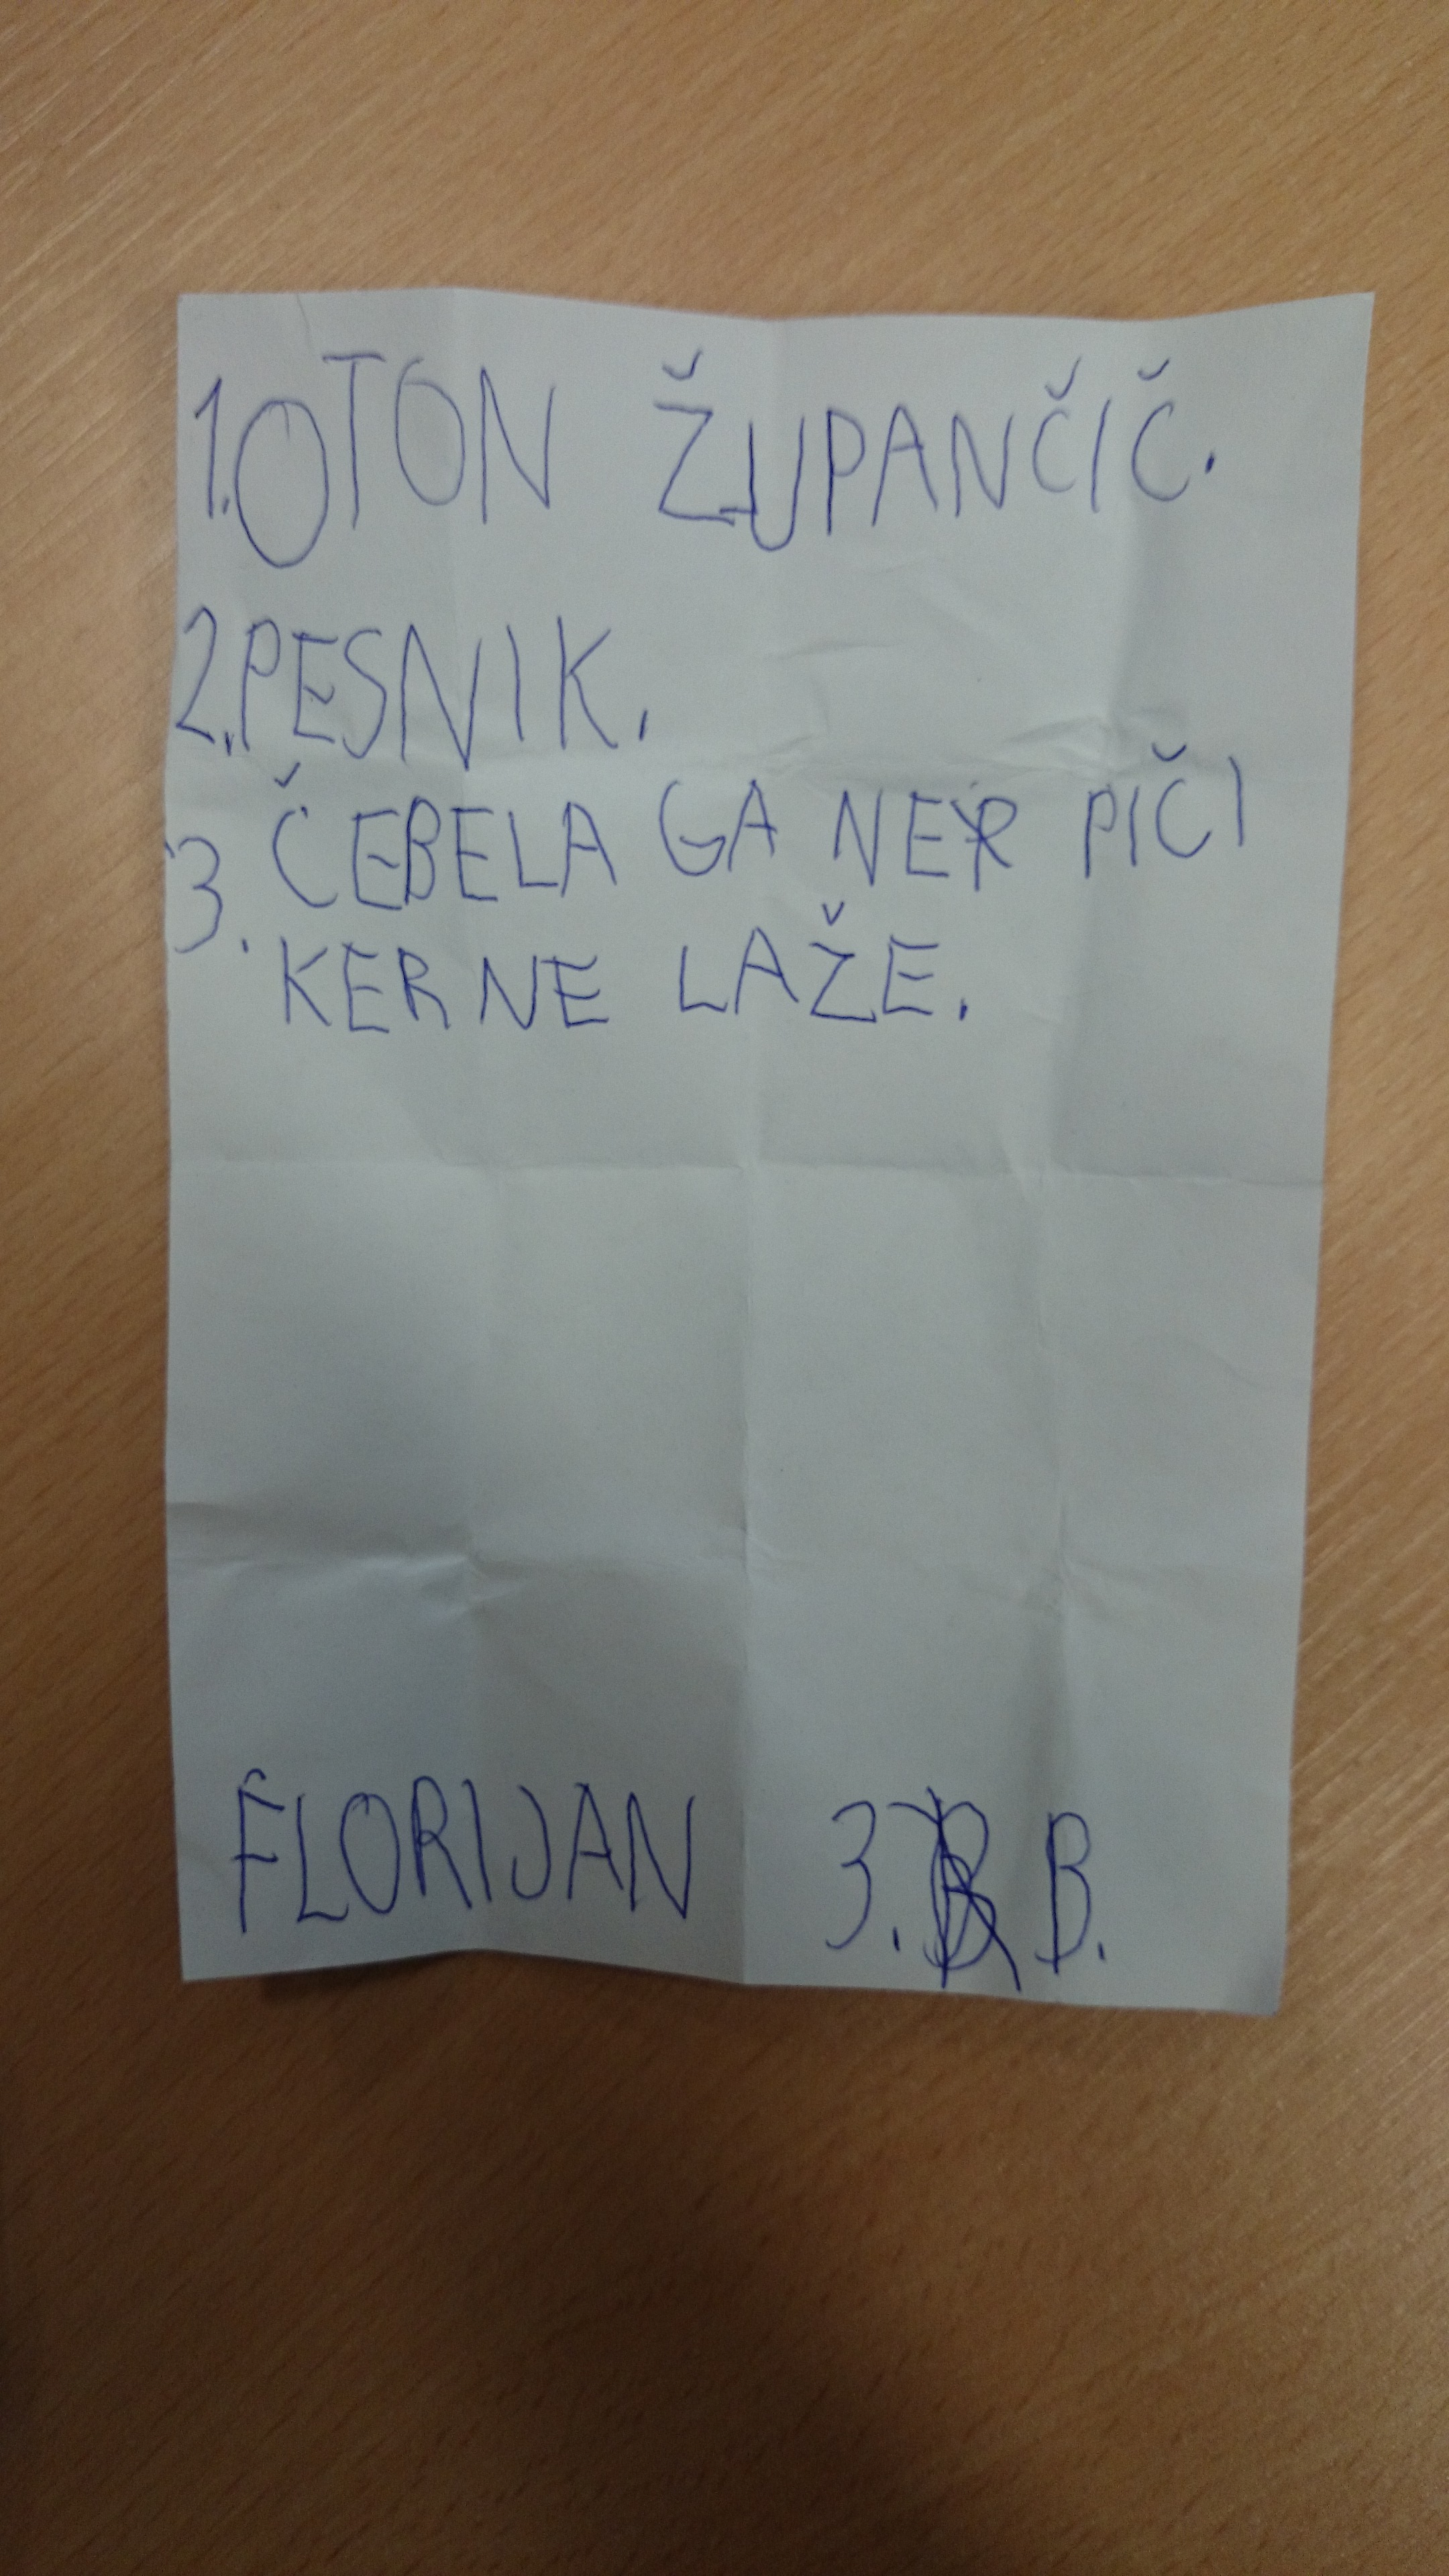 1. OTON ŽUPANČIČ.
2. PESNIK.
3. ČEBELA GA NE PIČI
KER NE LAŽE.
FLORIJAN 3. B.